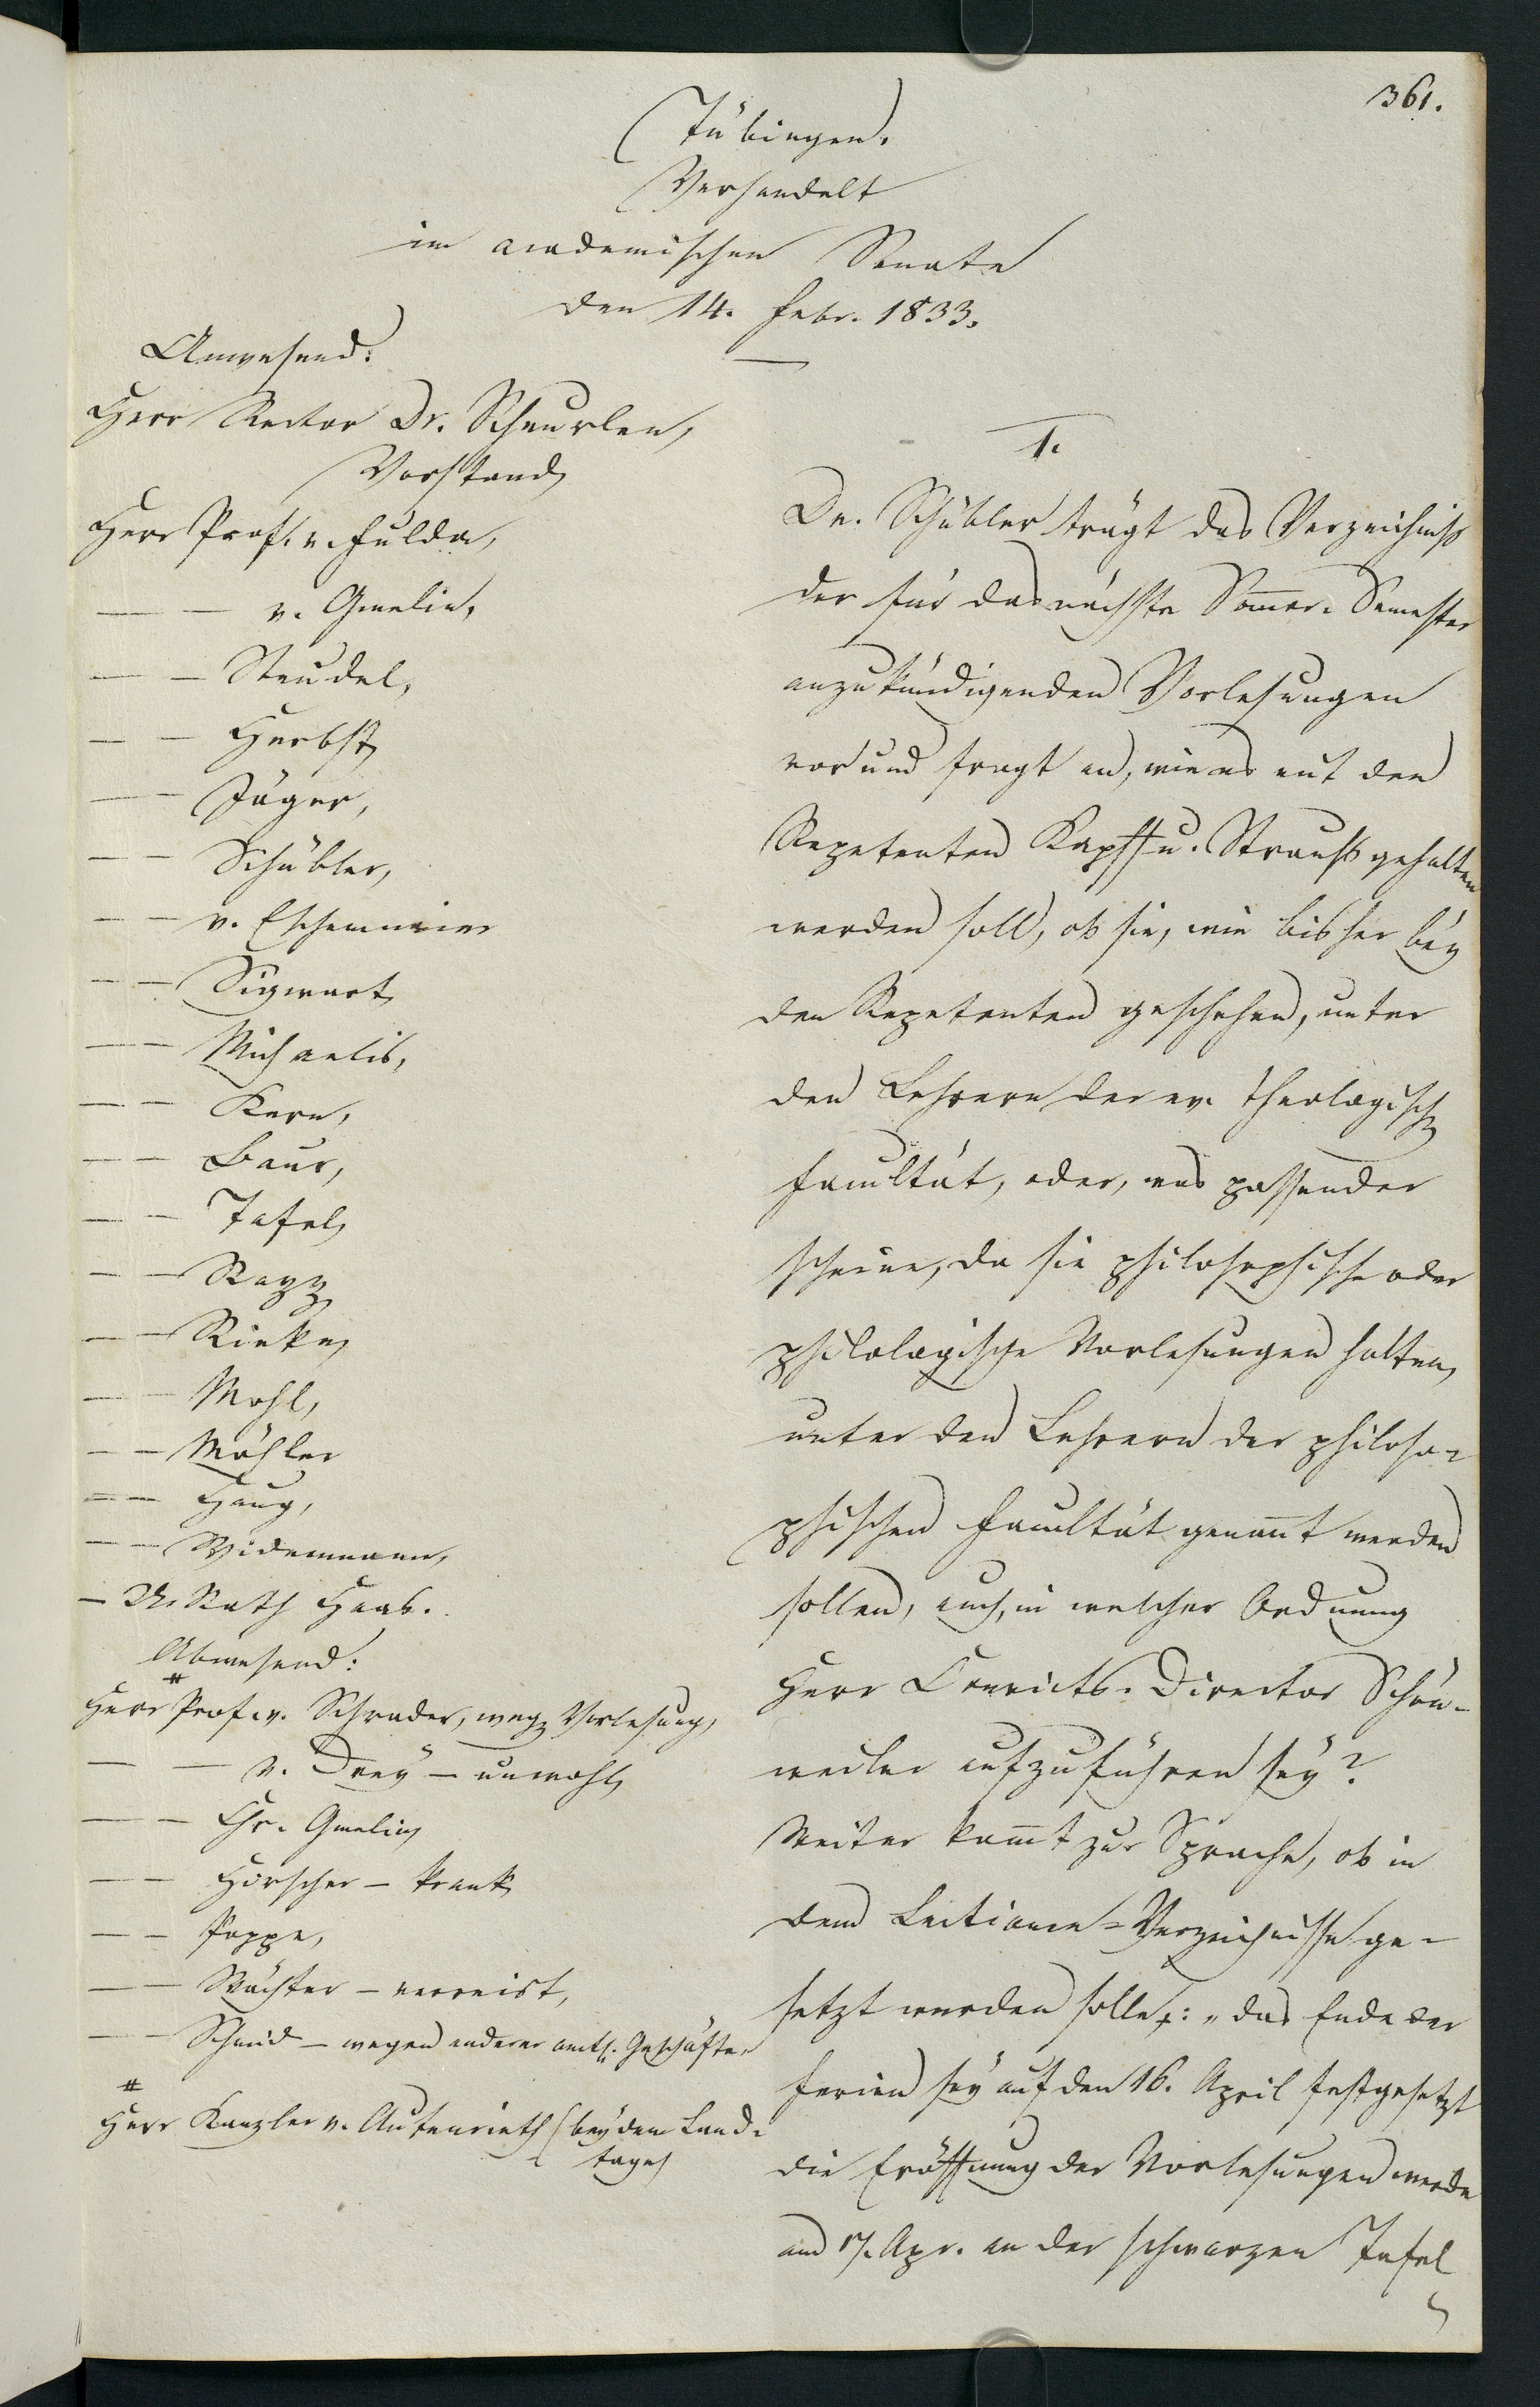 361.
Tübingen.
Verhandelt
im academischen Senate
den 14. Febr. 1833.
Anwesend:
Herr Rector Dr. Scheurlen,
Vorstand,
Herr Prof. v. Fulda,
— — v. Gmelin,
— — Steudel,
— — Herbst,
— — Jäger,
— — Schübler,
— — v. Eschenmaier
— — Sigwart,
— — Michaelis,
— — Kern,
— — Baur,
— — Tafel,
— — Rapp,
— — Rieke,
— — Mohl,
— — Möhler
— — Haug,
— — Widenmann,
— U. Rath Haab.
Abwesend:
#
Herr Prof. v. Schrader, wegen Vorlesung,
— — v. Drey – unwohl,
— — Chr. Gmelin,
— — Hirscher – krank,
— — Poppe,
— — Wächter – verreist,
— — Schmid – wegen anderer amtl. Geschäfte.
#
Herr Kanzler v. Autenrieth (bey dem Land-
tage)
1.
Dr. Schübler trägt das Verzeichniß
der für das nächste Som̅er-Semester
anzukündigenden Vorlesungen
vor und fragt an, wie es mit den
Repetenten Kapff u. Strauß gehalten
werden soll, ob sie, wie bisher bey
den Repetenten geschehen, unter
den Lehrern der ev. theologisch.
Facultät, oder, was passender
scheine, da sie philosophische oder
philologische Vorlesungen halten,
unter den Lehrern der philoso-
phischen Facultät genan̅t werden
sollen, auch, in welcher Ordnung
Herr Convicts-Director Schön-
weiler aufzuführen sey?
Weiter kom̅t zur Sprache, ob in
dem Lections-Verzeichnisse ge-
setzt werden solle: „das Ende der
Ferien sey auf den 16. April festgesetzt
die Eröffnung der Vorlesungen werde
am 17. Apr. an der schwarzen Tafel